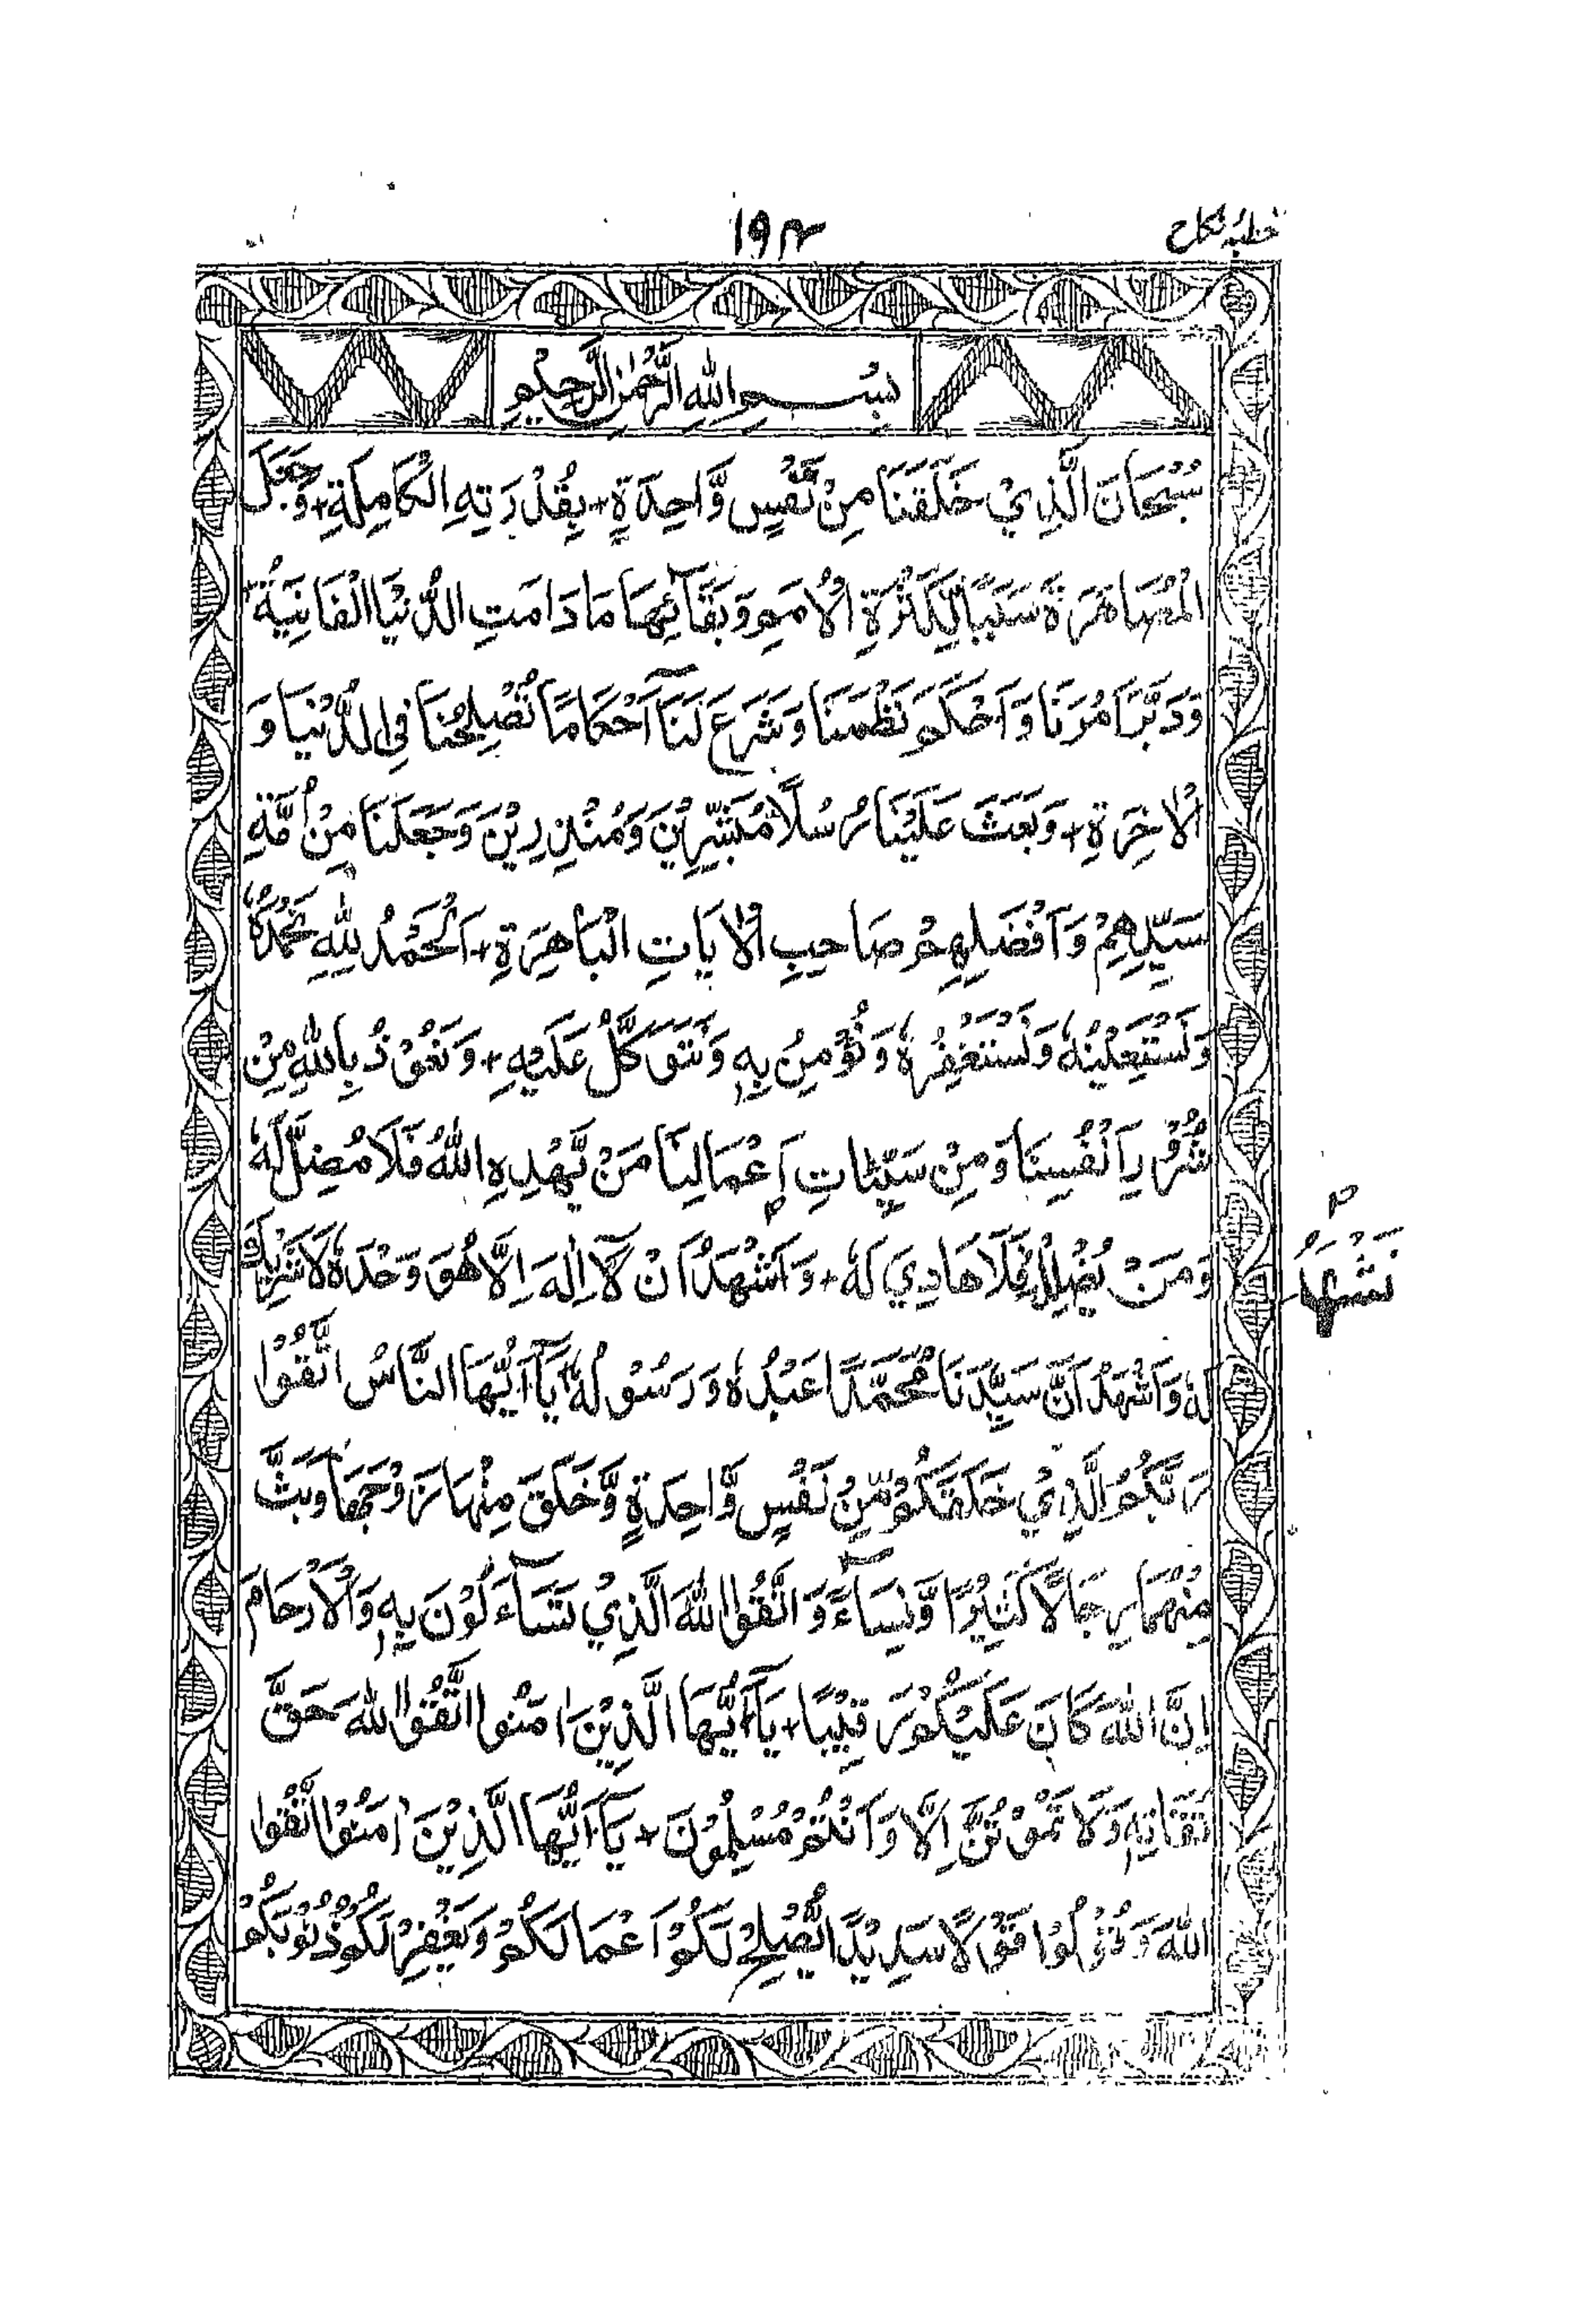 خطبہ نکاح
۱۹۴
بِسْمِ اللهِ الرَّحْمٰنِ الرَّحِيْمِ
سُبْحَانَ الَّذِيْ خَلَقَنَا مِنْ نَّفْسٍ وَّاحِدَةٍ + بِقُدْرَتِهِ الْكَامِلَةِ + وَجَعَلَ
الْمُصَاهَرَةَ سَبَبًا لِّكَثْرَةِ الْاُمَمِ وَبَقَآئِهَا مَادَامَتِ الدُّنْيَا الْفَانِيَةُ
وَدَبَّرَ اَمْرَنَا وَاَحْكَمَ نَظْمَنَا وَشَرَعَ لَنَآ اَحْكَامًا تُصْلِحُنَا فِي الدُّنْيَا وَ
الْاٰخِرَةِ + وَبَعَثَ عَلَيْنَا رُسُلًا مُّبَشِّرِيْنَ وَمُنْذِرِيْنَ وَجَعَلَنَا مِنْ اُمَّةِ
سَيِّدِهِمْ وَاَفْضَلِهِمْ صَاحِبِ الْاٰيَاتِ الْبَاهِرَةِ + اَلْحَمْدُ لِلّٰهِ نَحْمَدُهٗ
وَنَسْتَعِيْنُهٗ وَنَسْتَغْفِرُهٗ وَنُؤْمِنُ بِهٖ وَنَتَوَكَّلُ عَلَيْهِ + وَنَعُوْذُ بِاللهِ مِنْ
شُرُوْرِ اَنْفُسِنَا وَمِنْ سَيِّئَاتِ اَعْمَالِنَا مَنْ يَّهْدِهِ اللهُ فَلَا مُضِلَّ لَهٗ
وَمَنْ يُّضْلِلْهُ فَلَا هَادِيَ لَهٗ + وَاَشْهَدُ اَنْ لَّآ اِلٰهَ اِلَّا هُوَ وَحْدَهٗ لَا شَرِيْكَ
نَشْهَدُ
لَهٗ وَاَشْهَدُ اَنَّ سَيِّدَنَا مُحَمَّدًا عَبْدُهٗ وَرَسُوْلُهٗ يَآ اَيُّهَا النَّاسُ اتَّقُوْا
رَبَّكُمُ الَّذِيْ خَلَقَكُمْ مِّنْ نَفْسٍ وَّاحِدَةٍ وَّخَلَقَ مِنْهَا زَوْجَهَا وَبَثَّ
مِنْهُمَا رِجَالًا كَثِيْرًا وَّنِسَآءً وَاتَّقُوا اللهَ الَّذِيْ تَسَآءَلُوْنَ بِهٖ وَالْاَرْحَامَ
اِنَّ اللهَ كَانَ عَلَيْكُمْ رَقِيْبًا + يَآ اَيُّهَا الَّذِيْنَ اٰمَنُوا اتَّقُوا اللهَ حَقَّ
تُقَاتِهٖ وَلَا تَمُوْتُنَّ اِلَّا وَاَنْتُمْ مُّسْلِمُوْنَ + يَآ اَيُّهَا الَّذِيْنَ اٰمَنُوا اتَّقُوا
اللهَ وَقُوْلُوْا قَوْلًا سَدِيْدًا يُّصْلِحْ لَكُمْ اَعْمَالَكُمْ وَيَغْفِرْ لَكُمْ ذُنُوْبَكُمْ